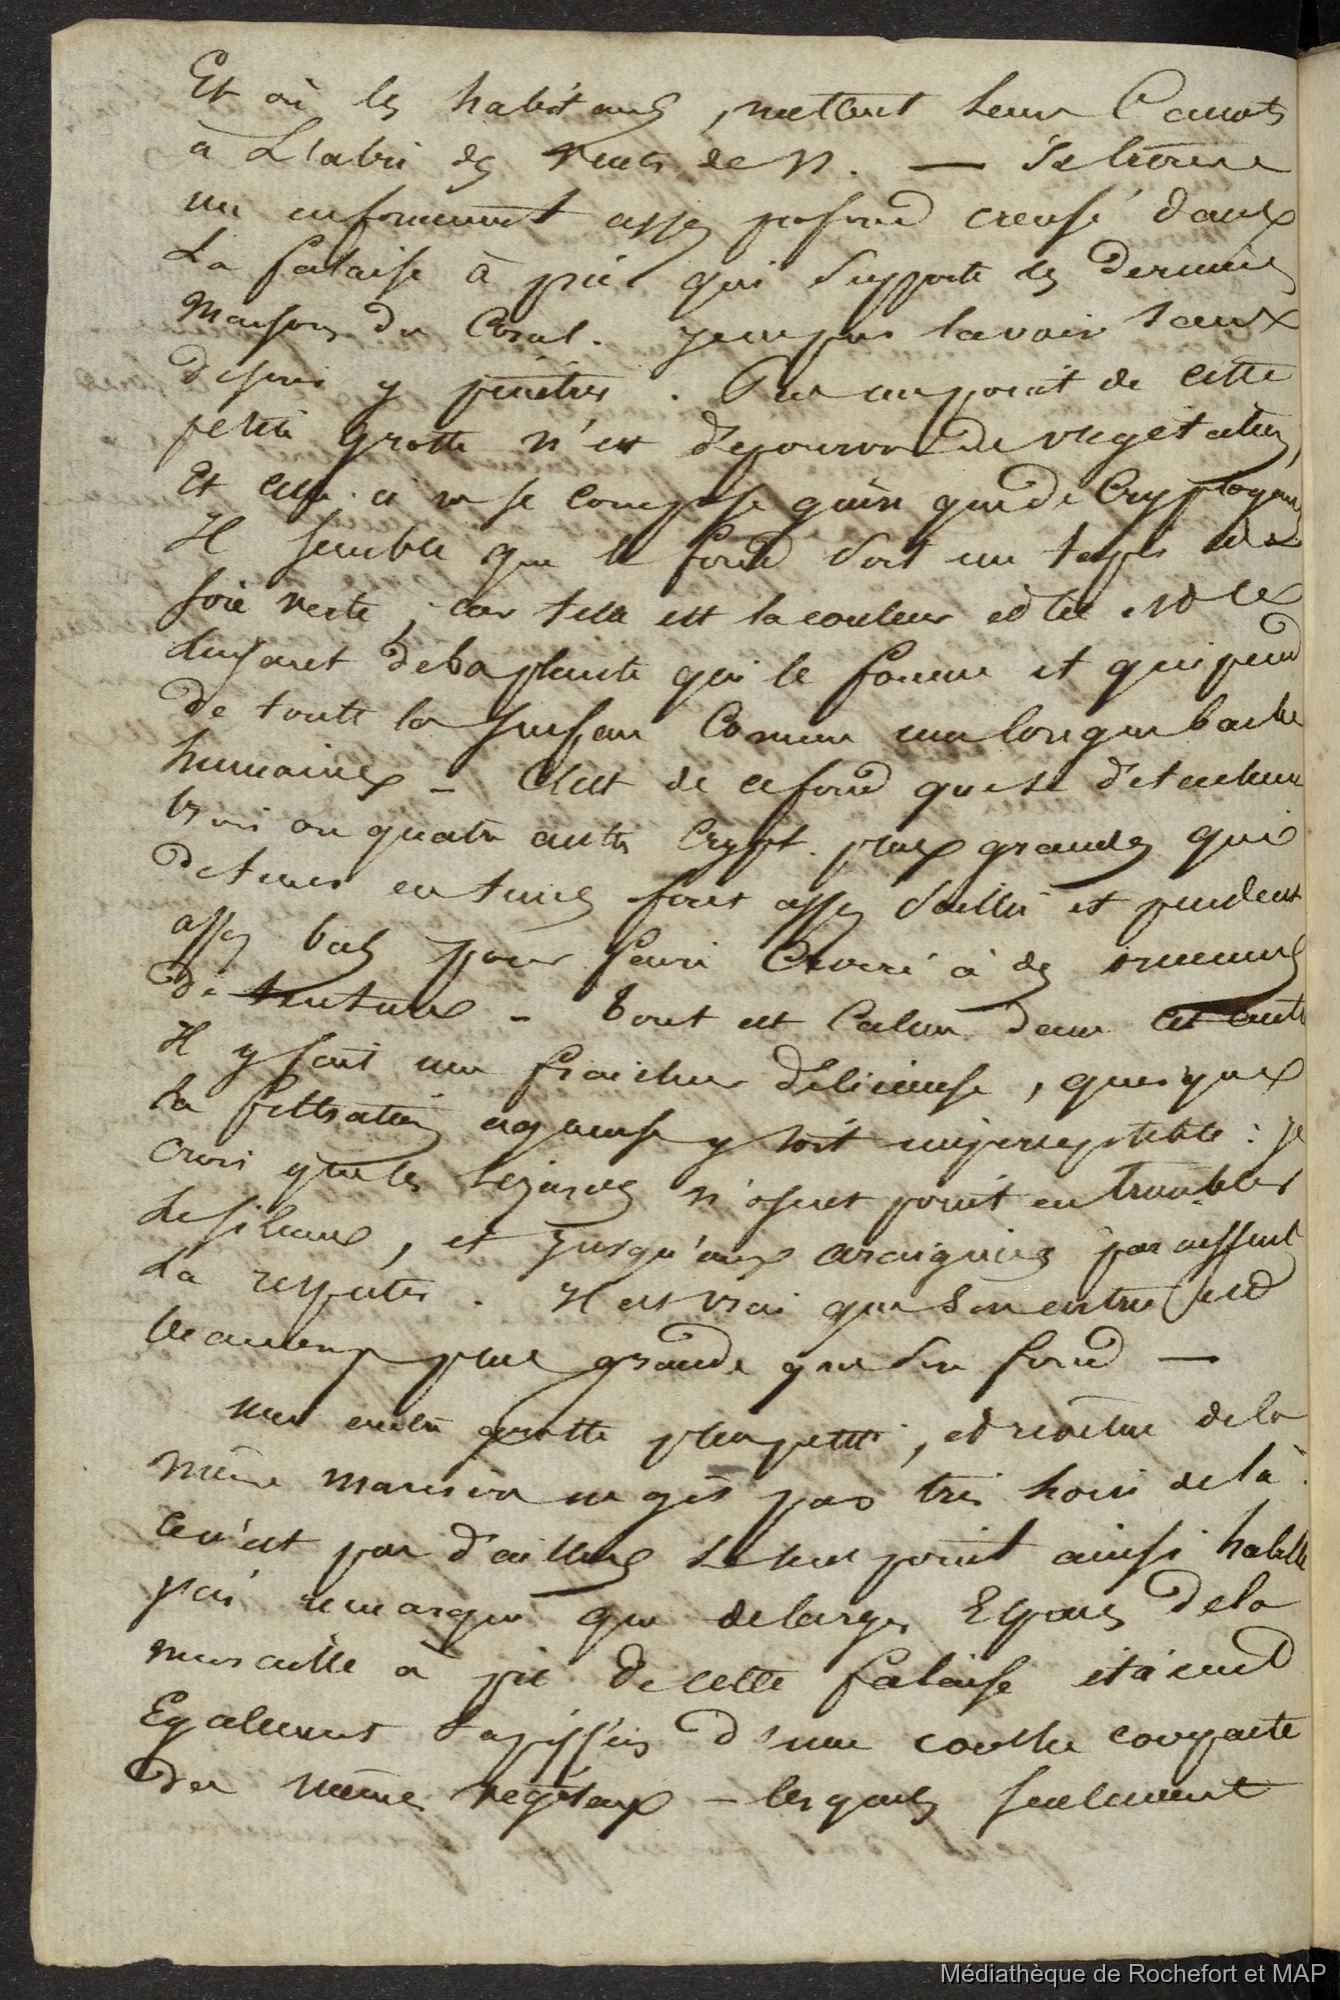 Et où les habitans, mettent leurs Canots
à L'abri des vents de N. — Se trouve
un enfoncement assez profond creusé dans
La falaise à pic qui supporte les dernières
Maisons du Coral. je ne pus la voir sans
desirer y pénétrer. Pas un point de cette
petite grotte n'est dépourvu de vegetation,
Et celle-ci ne se compose que de Cryptogames
Il semble que le fond soit un tapis de
soie verte, car telle est la couleur et tel est le
de la plante qui le forme et qui pend
de toute la surface Comme une longue barbe
humaine — C'est de ce fond que se détachent
trois ou quatre autres Crypt. plus grandes qui
de tems en tems font assez saillie et pendent
assez bas pour faire Croire à des
de tenture — Tout est Calme dans cet antre
Il y fait une fraicheur délicieuse, quoique
La filtration aqueuse y soit imperceptible : je
crois que les Lezards n'osent point en troubler
Le silence, et jusqu'aux araignées paraissent
La respecter. Il est vrai que son entrée est
beaucoup plus grande que son fond —
une autre grotte plus petite, et revêtue de la
même maniere ne gît pas très loin de là.
Ce n'est pas d'ailleurs Le seul point ainsi habillé
j'ai remarqué que de larges Espaces de la
muraille à pic de cette falaise étaient
Egalement tapissés d'une couche compacte
des mêmes vegétaux — lesquels seulement
Médiathèque de Rochefort et MAP